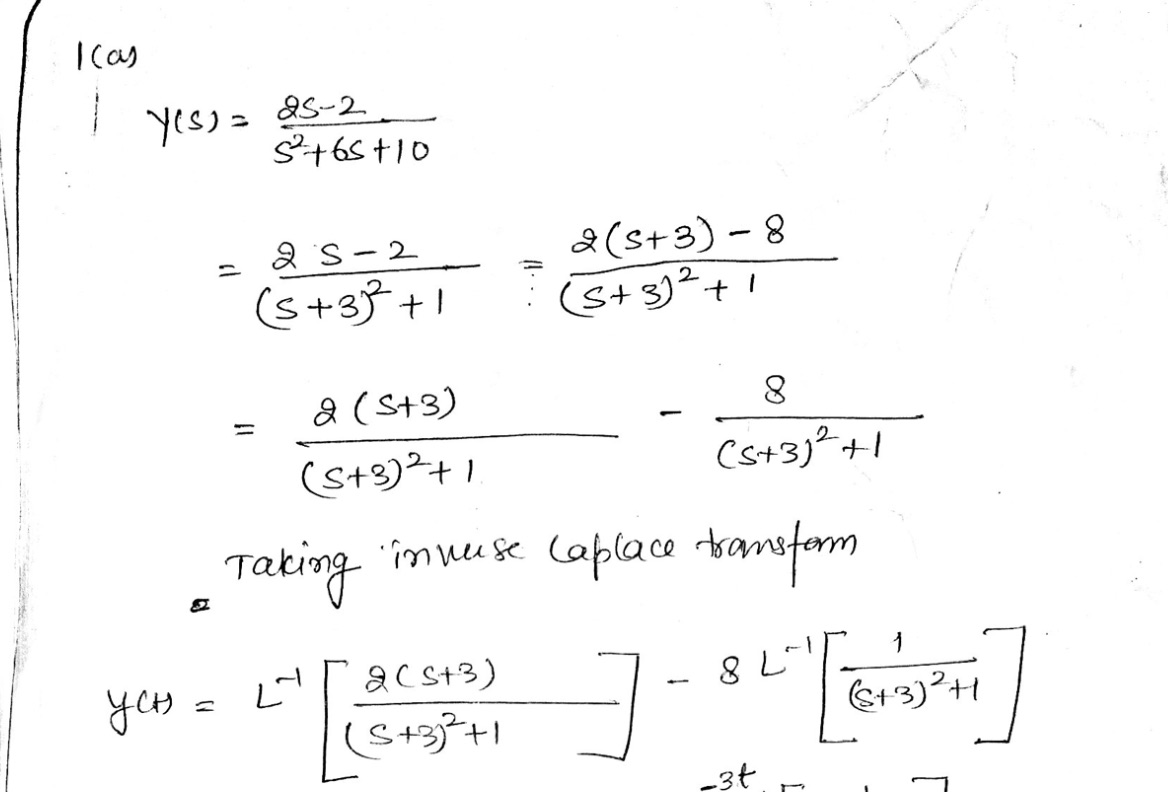 1(a)
Y(s) = 2s-2 / s²+6s+10
= 2s-2 / (s+3)²+1 = 2(s+3)-8 / (s+3)²+1
= 2(s+3) / (s+3)²+1 - 8 / (s+3)²+1
Taking inverse Laplace transform
y(t) = L⁻¹[2(s+3) / (s+3)²+1] - 8 L⁻¹[1 / (s+3)²+1]
-3t